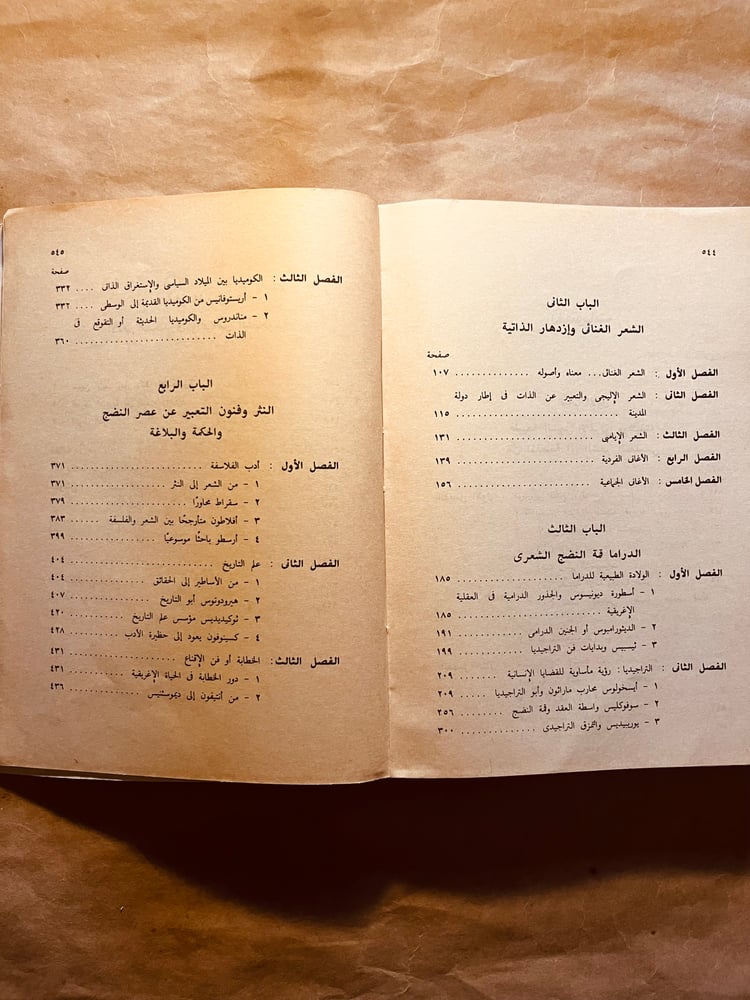 ٥٤٤
الباب الثانى
الشعر الغنائى وإزدهار الذاتية
صفحة
الفصل الأول : الشعر الغنائى... معناه وأصوله .............. ١٠٧
الفصل الثانى : الشعر الإليجى والتعبير عن الذات فى إطار دولة
المدينة .............................. ١١٥
الفصل الثالث : الشعر الإيامبى ........................ ١٣١
الفصل الرابع : الأغانى الفردية ........................ ١٣٩
الفصل الخامس : الأغانى الجماعية ...................... ١٥٦
الباب الثالث
الدراما قمة النضج الشعرى
الفصل الأول : الولادة الطبيعية للدراما .................... ١٨٥
١ - أسطورة ديونيسوس والجذور الدرامية فى العقلية
الإغريقية ........................ ١٨٥
٢ - الديثورامبوس أو الجنين الدرامى ............ ١٩١
٣ - ثيسبيس وبدايات فن التراجيديا ............ ١٩٩
الفصل الثانى : التراجيديا : رؤية مأساوية للقضايا الإنسانية .... ٢٠٩
١ - أيسخولوس محارب ماراثون وأبو التراجيديا .. ٢٠٩
٢ - سوفوكليس واسطة العقد وقمة النضج ........ ٢٥٦
٣ - يوريبيديس والتمزق التراجيدى .............. ٣٠٠
٥٤٥
صفحة
الفصل الثالث : الكوميديا بين الميلاد السياسى والإستغراق الذاتى .... ٣٣٢
١ - أريستوفانيس من الكوميديا القديمة إلى الوسطى .... ٣٣٢
٢ - مناندروس والكوميديا الحديثة أو التقوقع فى
الذات ............................ ٣٦٠
الباب الرابع
النثر وفنون التعبير عن عصر النضج
والحكمة والبلاغة
الفصل الأول : أدب الفلاسفة ........................ ٣٧١
١ - من الشعر إلى النثر .................... ٣٧١
٢ - سقراط محاورًا ........................ ٣٧٩
٣ - أفلاطون متأرجحًا بين الشعر والفلسفة ...... ٣٨٣
٤ - أرسطو باحثًا موسوعيًا .................. ٣٩٩
الفصل الثانى : علم التاريخ .......................... ٤٠٤
١ - من الأساطير إلى الحقائق ................ ٤٠٤
٢ - هيرودوتوس أبو التاريخ .................. ٤٠٧
٣ - ثوكيديديس مؤسس علم التاريخ ............ ٤٢٠
٤ - كسينوفون يعود إلى حظيرة الأدب .......... ٤٢٨
الفصل الثالث : الخطابة أو فن الإقناع .................... ٤٣١
١ - دور الخطابة فى الحياة الإغريقية ............ ٤٣١
٢ - من أنتيفون إلى ديموستنيس .............. ٤٣٦